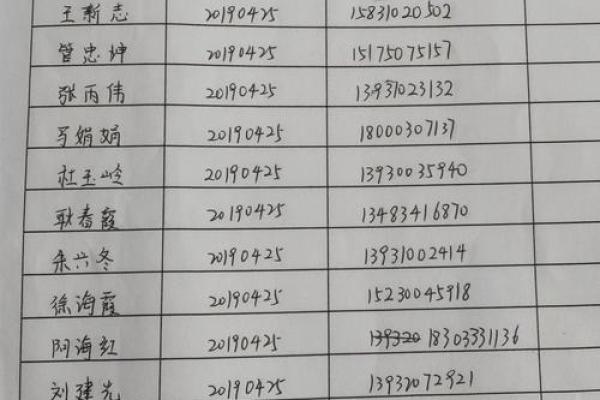 王新志 20190425 15831020502
管忠坤 20190425 15175075157
张丙伟 20190425 13931023132
马娟娟 20190425 18000307137
杜玉岭 20190425 13930035940
耿春霞 20190425 13483416870
20190425 13931002414
徐海霞 20190425 15230045918
海红 20190425 139320 18303331136
刘建光 20190425 13932072921